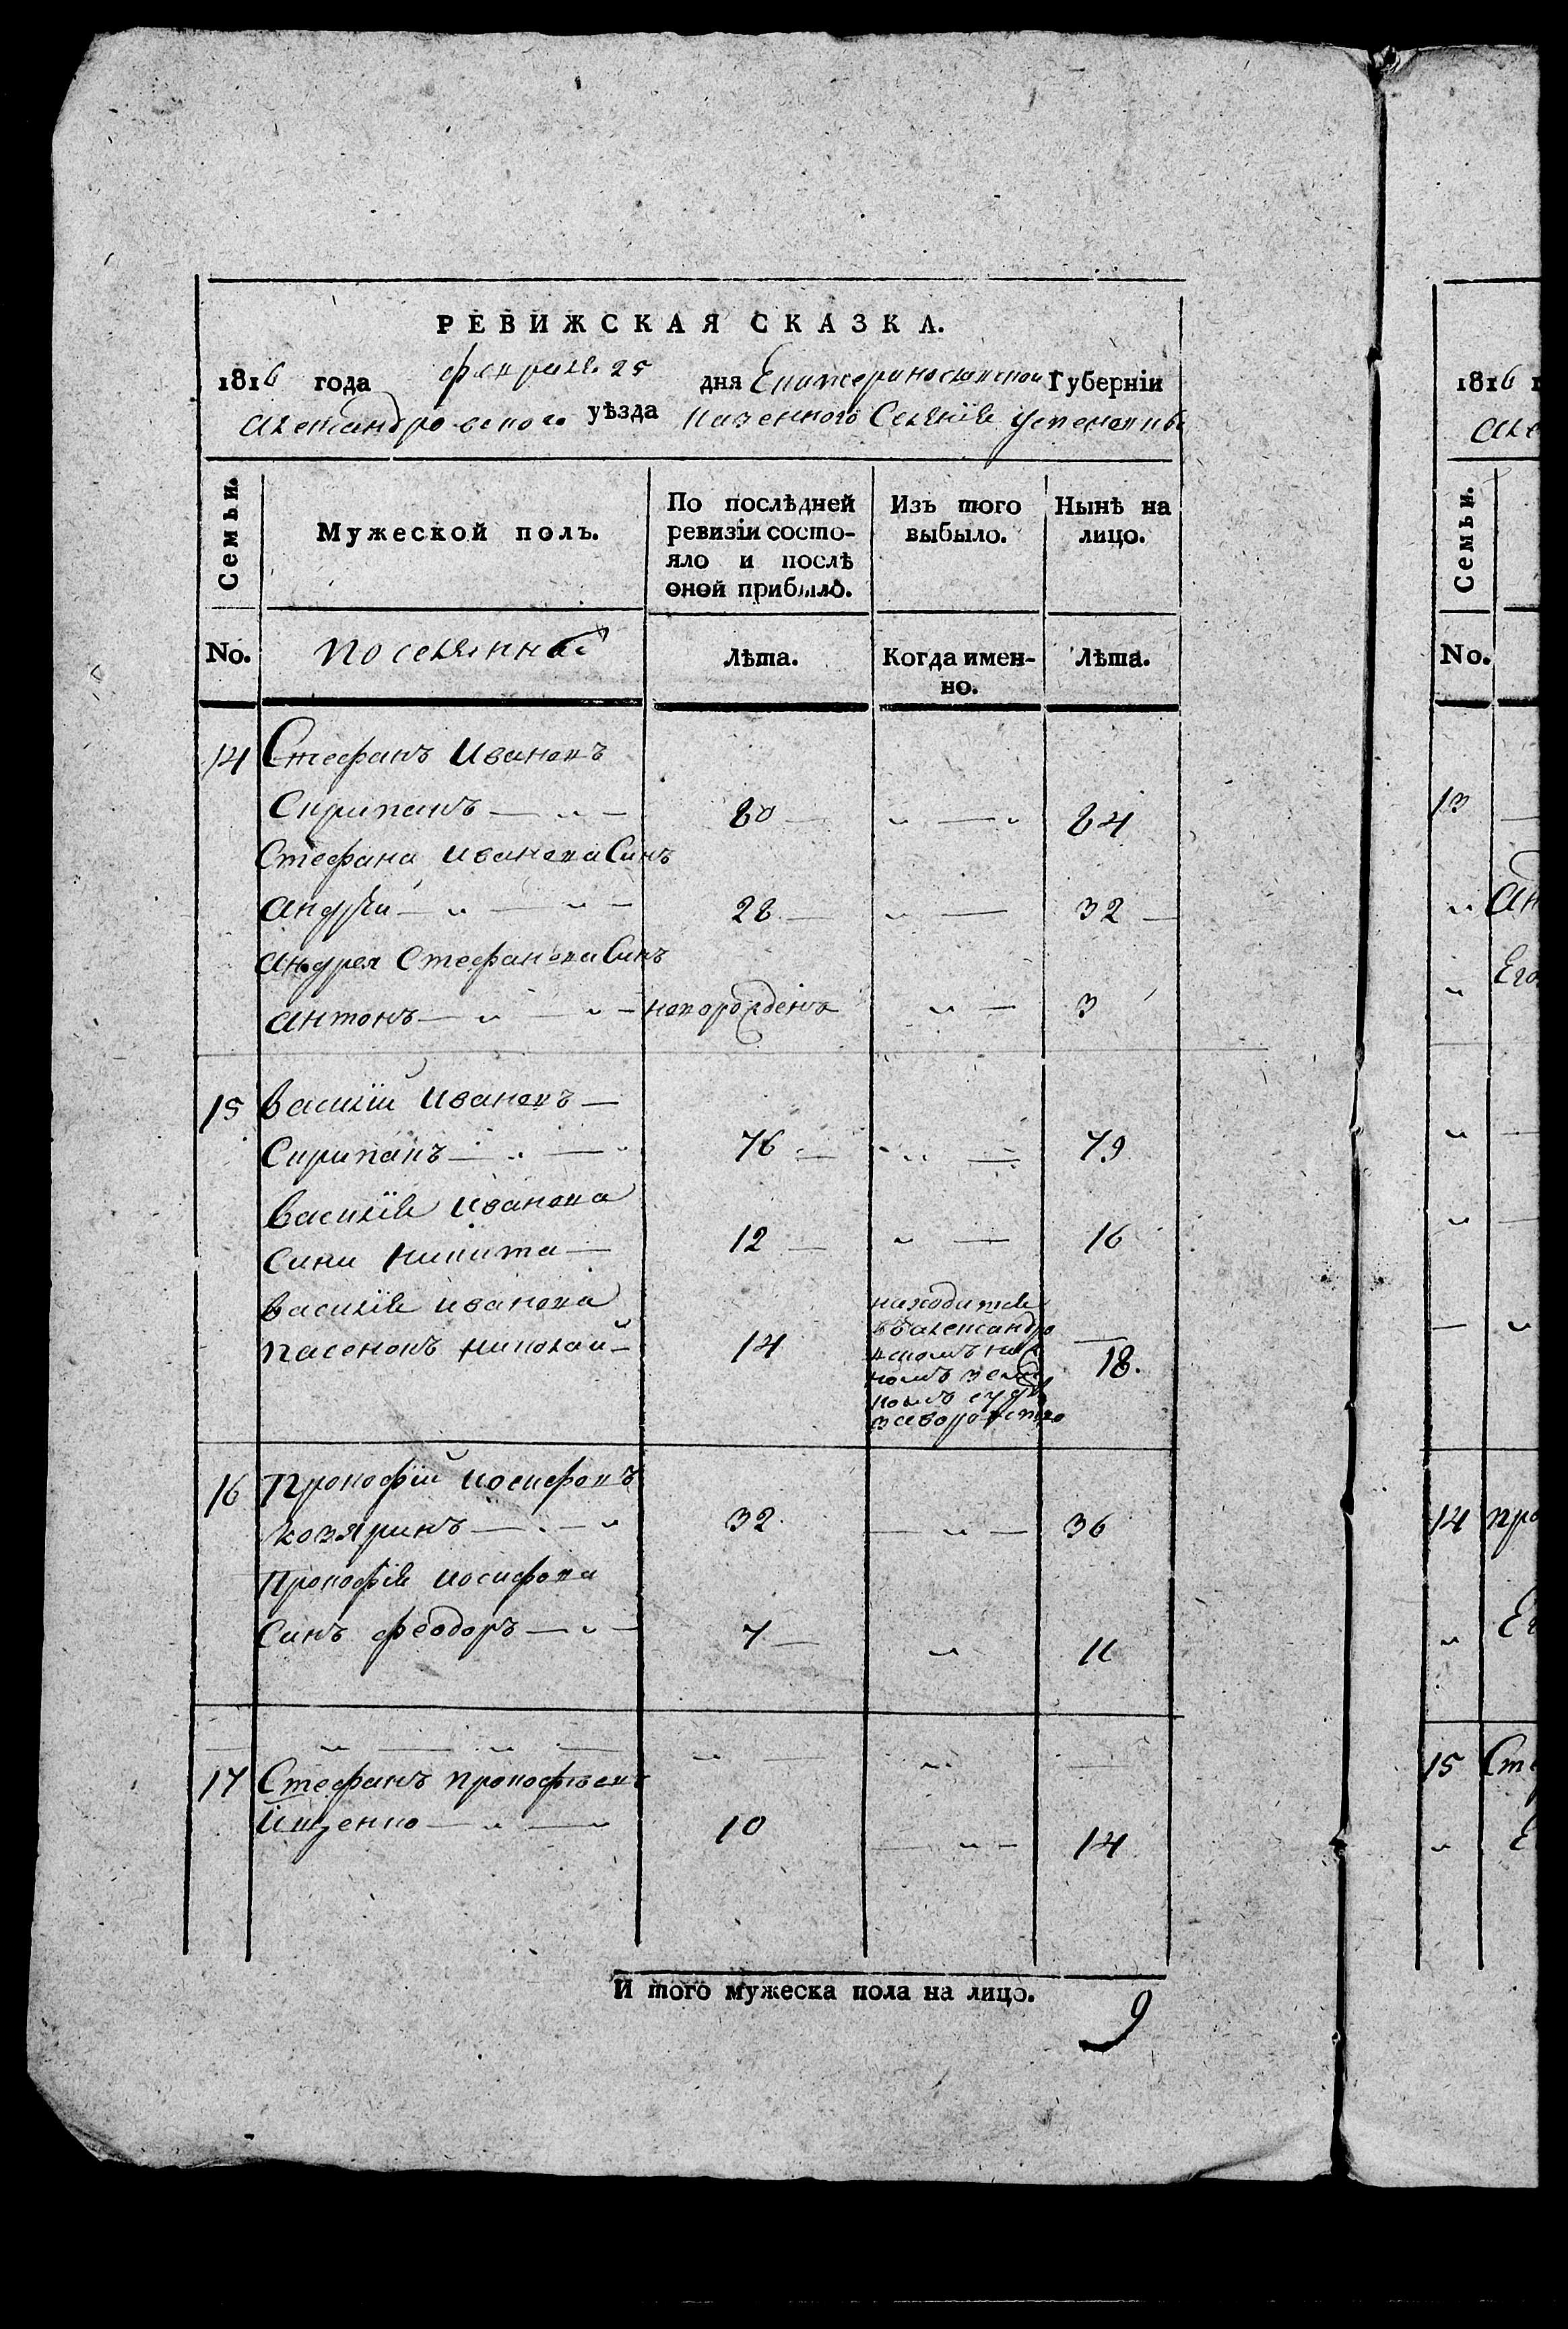 РЕВИЖСКАЯ СКАЗКА.
1816 года февраля 25 дня Екатеринославской Губерніи
Александровского уѣзда Казенного Селенія Успеновки
Семьи.
Мужеской полъ.
По послѣдней ревизіи состо-
яло и послѣ
оной прибыло.
Изъ того
выбыло.
Нынѣ на
лицо.
No.
поселяннъ
Лѣта.
Когда имен-
но.
Лѣта.
14 Стефанъ Ивановъ
Скрипакъ — " — 80 — " — " 84
Стефана Иванова Синъ
Андрѣй — " — " — 28 — " — 32 —
Андрея Стефанова Синъ
Антонъ — " — " — новорожденъ " — 3
15 Василій Ивановъ —
Скрипакъ — " — " 76 — " — 79
Василія Иванова
Сини Никита — 12 — " — 16
Василія Иванова
пасенокъ Николай — 14 — 18.
находится
въ Александро
вскомъ ниж
номъ зем
комъ судѣ
16 Прокофій Иосифовъ
Козяринъ — " — " 32 — " — 36
Прокофія Иосифова
Синъ Феодоръ — " — 7 — " 11
— " — " — " — " —
17 Стефанъ Прокофьевъ
Ищенко — " — " 10 — " — 14
И того мужеска пола на лицо. 9
1816
Але
Семьи.
No.
13 —
" Ан
" Его
" —
" —
— "
14 про
" Ег
15 Сте
" Е